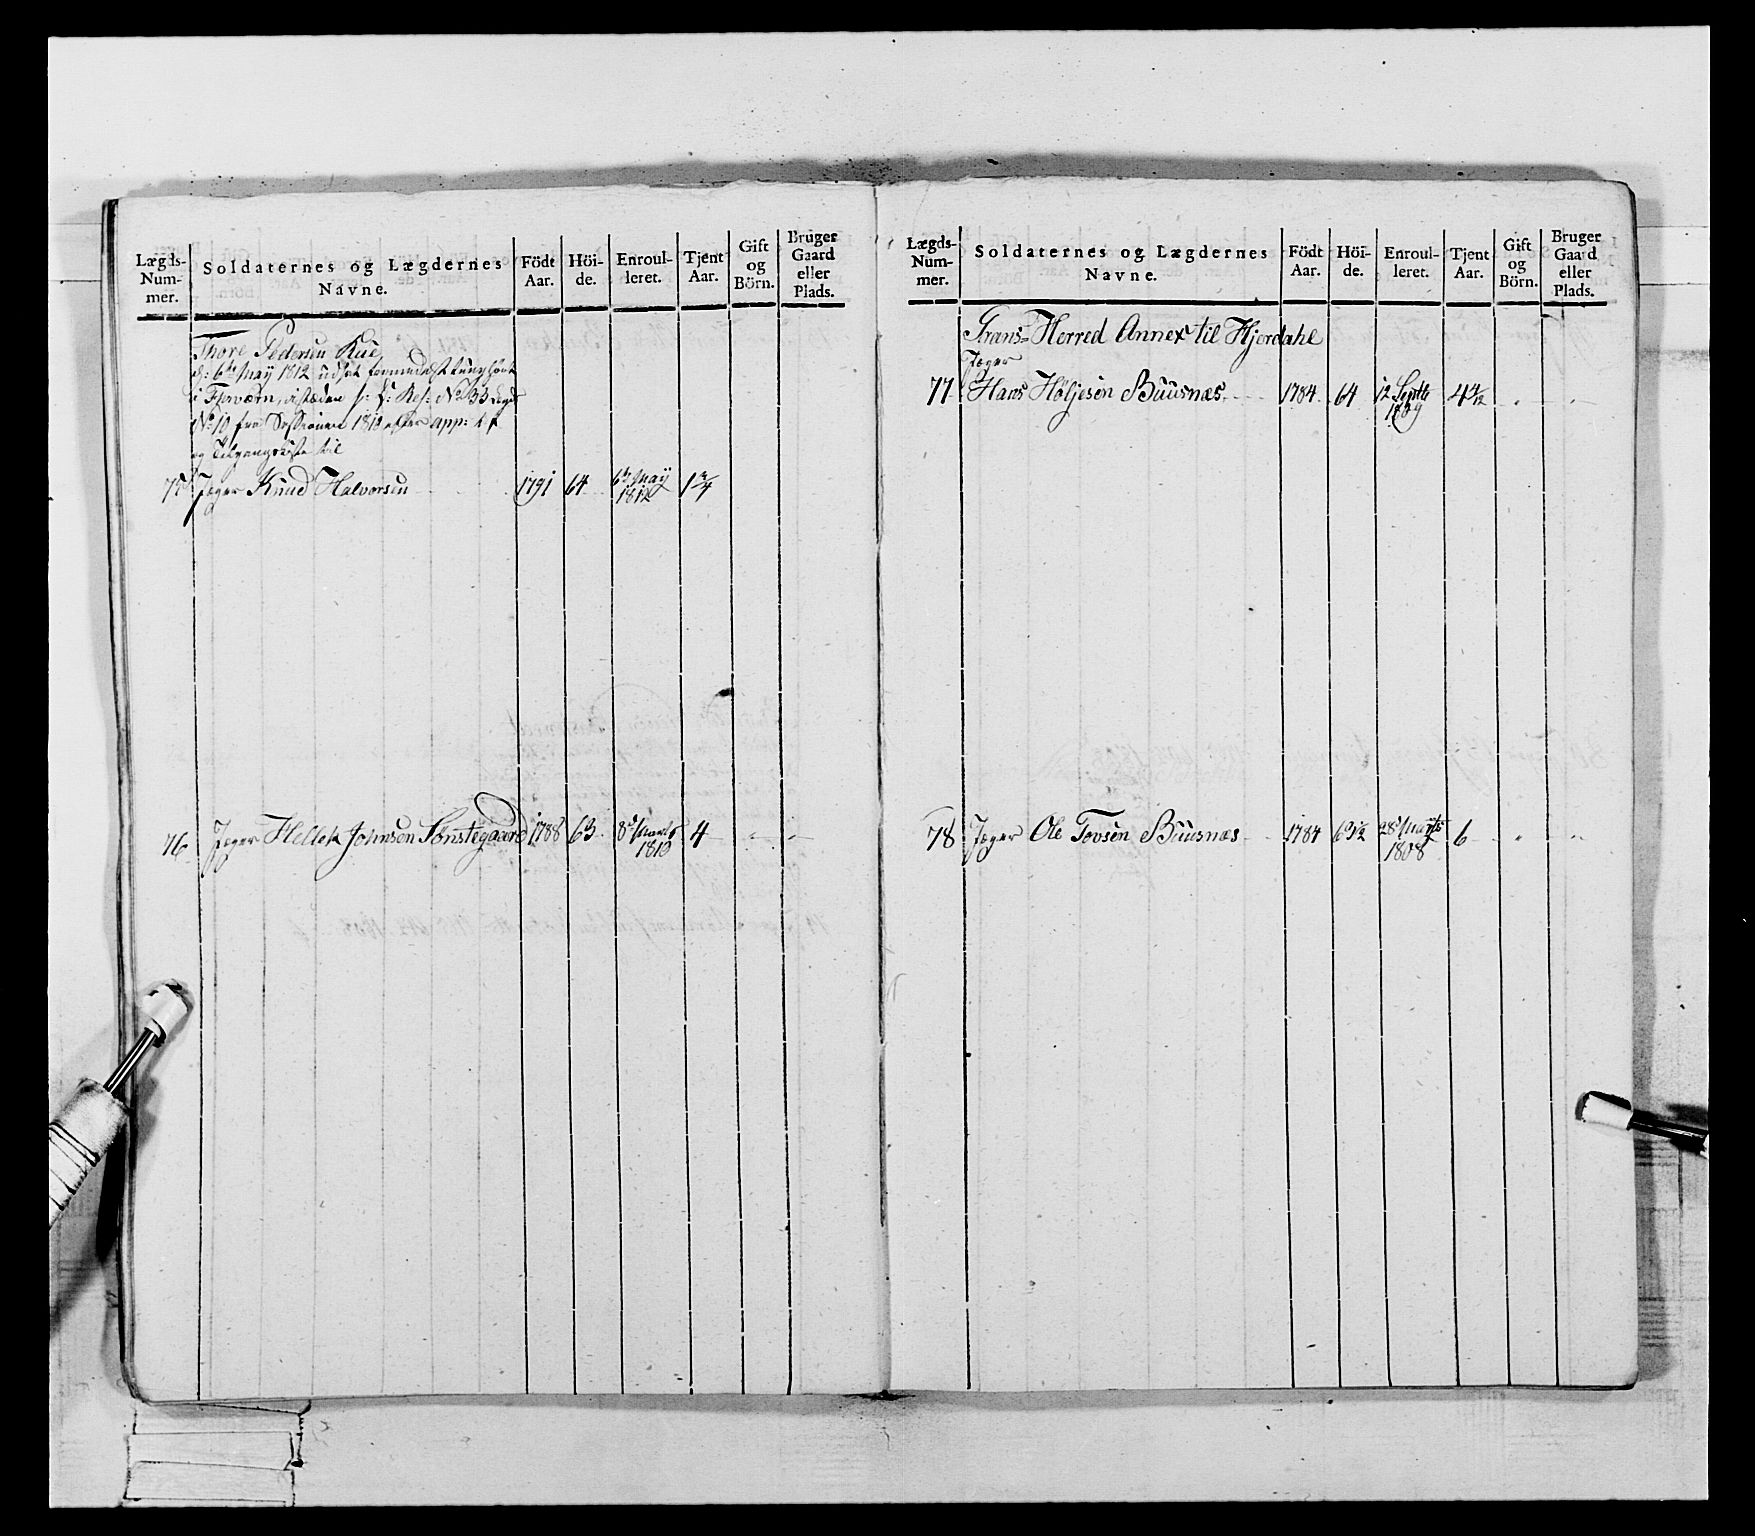 Lægds-
Num-
mer.
Soldaternes og Lægdernes
Navne.
Födt
Aar.
Höi-
de.
Enroul-
leret.
Tjent
Aar.
Gift
og
Börn.
Bruger
Gaard
eller
Plads.
Thore Pedersen Kue
d: 6te May 1812 udsat
i istæden s: L: Res: No 33
No 10 fra Sessionen 1812 efter app:
og Tilgangsliste til
75 Jæger Knud Halvorsen 1791 64 6te May
1812 1 3/4
76 Jæger Hellek Johnsen Tønstegaard 1788 63 8de Marts
1810 4 - -
Lægds-
Num-
mer.
Soldaternes og Lægdernes
Navne.
Födt
Aar.
Höi-
de.
Enroul-
leret.
Tjent
Aar.
Gift
og
Börn.
Bruger
Gaard
eller
Plads.
Grans-Herred Annex til Hjerdahl
Jæger
77 Hans Höljesen Buusnæs 1784 64 12 Septb
1809 4 4/12 - -
78 Jæger Ole Tovsen Buusnæs 1784 63 1/2 28de Marts
1808 6 " "